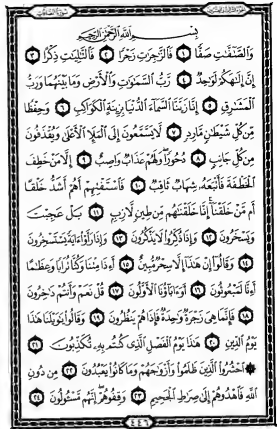 سورة الصافات
الجزء الثالث والعشرون
بسم الله الرحمن الرحيم
والصافات صفا ١ فالزاجرات زجرا ٢ فالتاليات ذكرا ٣
إن إلهكم لواحد ٤ رب السماوات والأرض وما بينهما ورب
المشارق ٥ إنا زينا السماء الدنيا بزينة الكواكب ٦ وحفظا
من كل شيطان مارد ٧ لا يسمعون إلى الملإ الأعلى ويقذفون
من كل جانب ٨ دحورا ولهم عذاب واصب ٩ إلا من خطف
الخطفة فأتبعه شهاب ثاقب ١٠ فاستفتهم أهم أشد خلقا
أم من خلقنا إنا خلقناهم من طين لازب ١١ بل عجبت
ويسخرون ١٢ وإذا ذكروا لا يذكرون ١٣ وإذا رأوا ءاية يستسخرون
١٤ وقالوا إن هذا إلا سحر مبين ١٥ أءذا متنا وكنا ترابا وعظاما
أءنا لمبعوثون ١٦ أوءاباؤنا الأولون ١٧ قل نعم وأنتم داخرون
١٨ فإنما هي زجرة واحدة فإذا هم ينظرون ١٩ وقالوا ياويلنا هذا
يوم الدين ٢٠ هذا يوم الفصل الذي كنتم به تكذبون ٢١
احشروا الذين ظلموا وأزواجهم وما كانوا يعبدون ٢٢ من دون
الله فاهدوهم إلى صراط الجحيم ٢٣ وقفوهم إنهم مسئولون ٢٤
٤٤٦